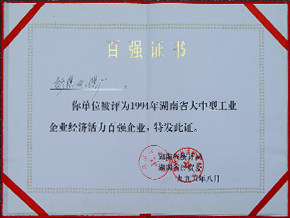 百强证书
你单位被评为1994年湖南省大中型工业
企业经济活力百强企业，特发此证。
湖南省统计局
湖南省
一九九五年八月